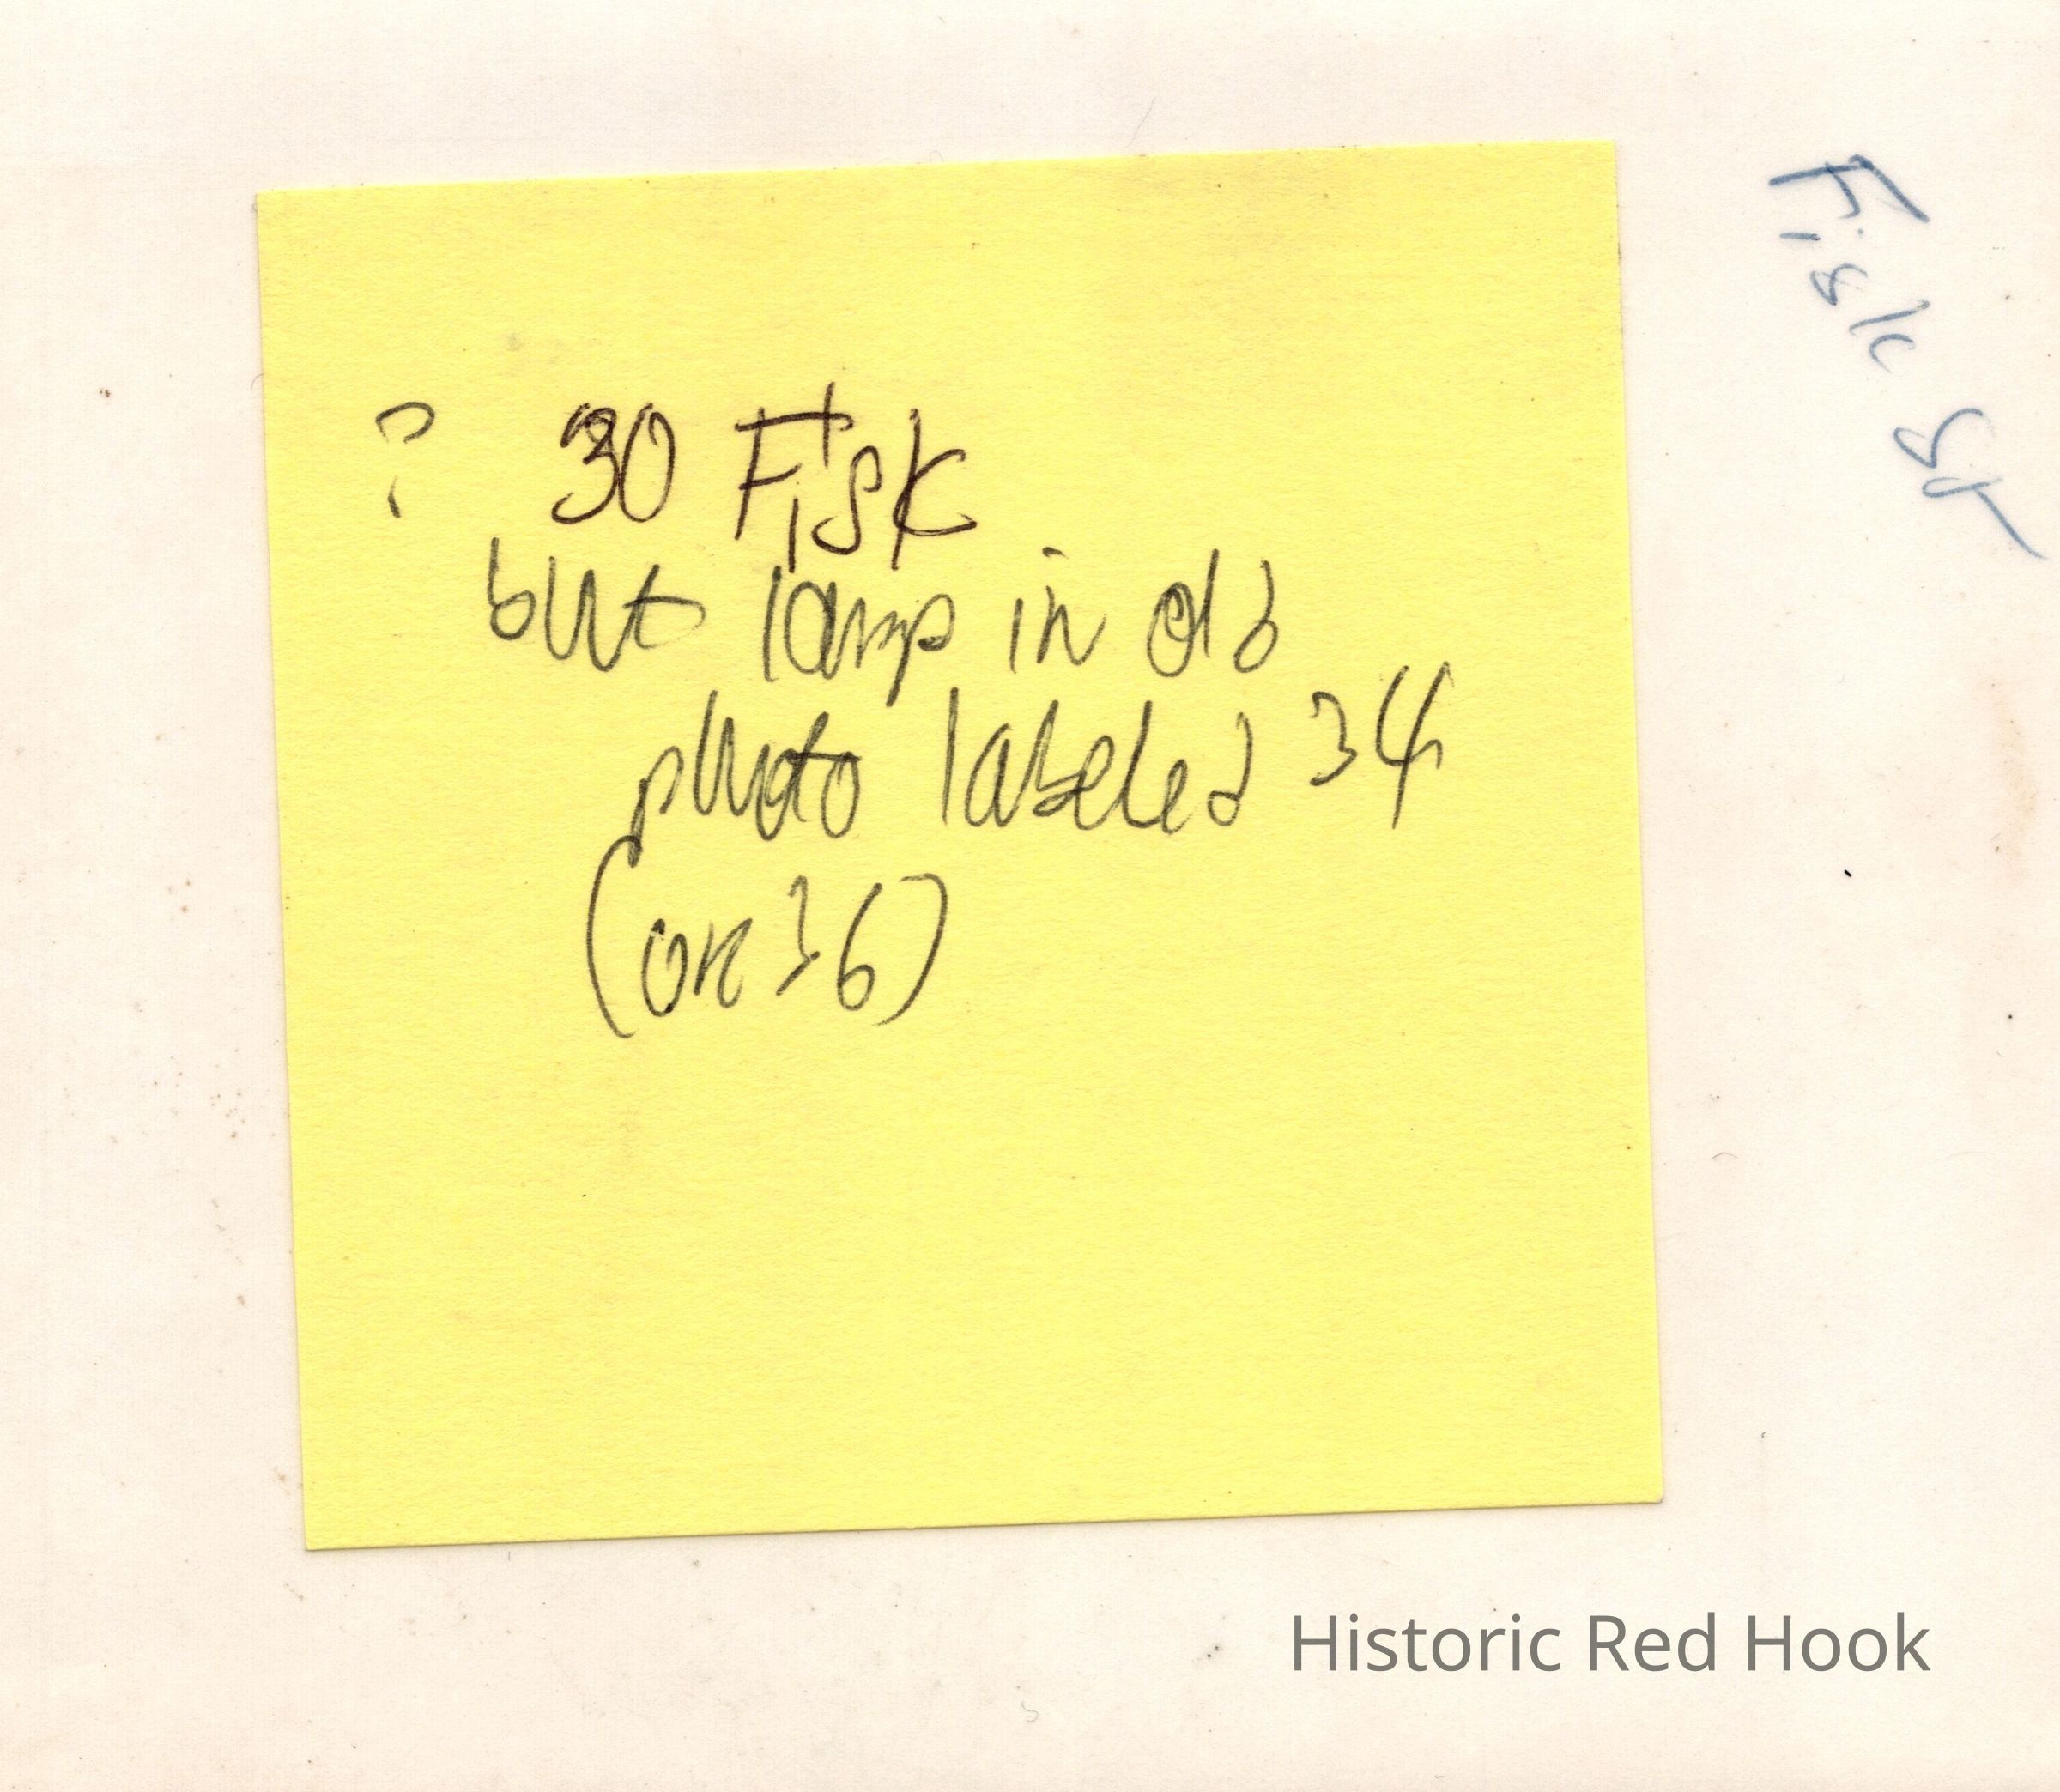 ? 30 Fisk
but lamp in old
photo labeled 34
(or 36)
Fisk St
Historic Red Hook